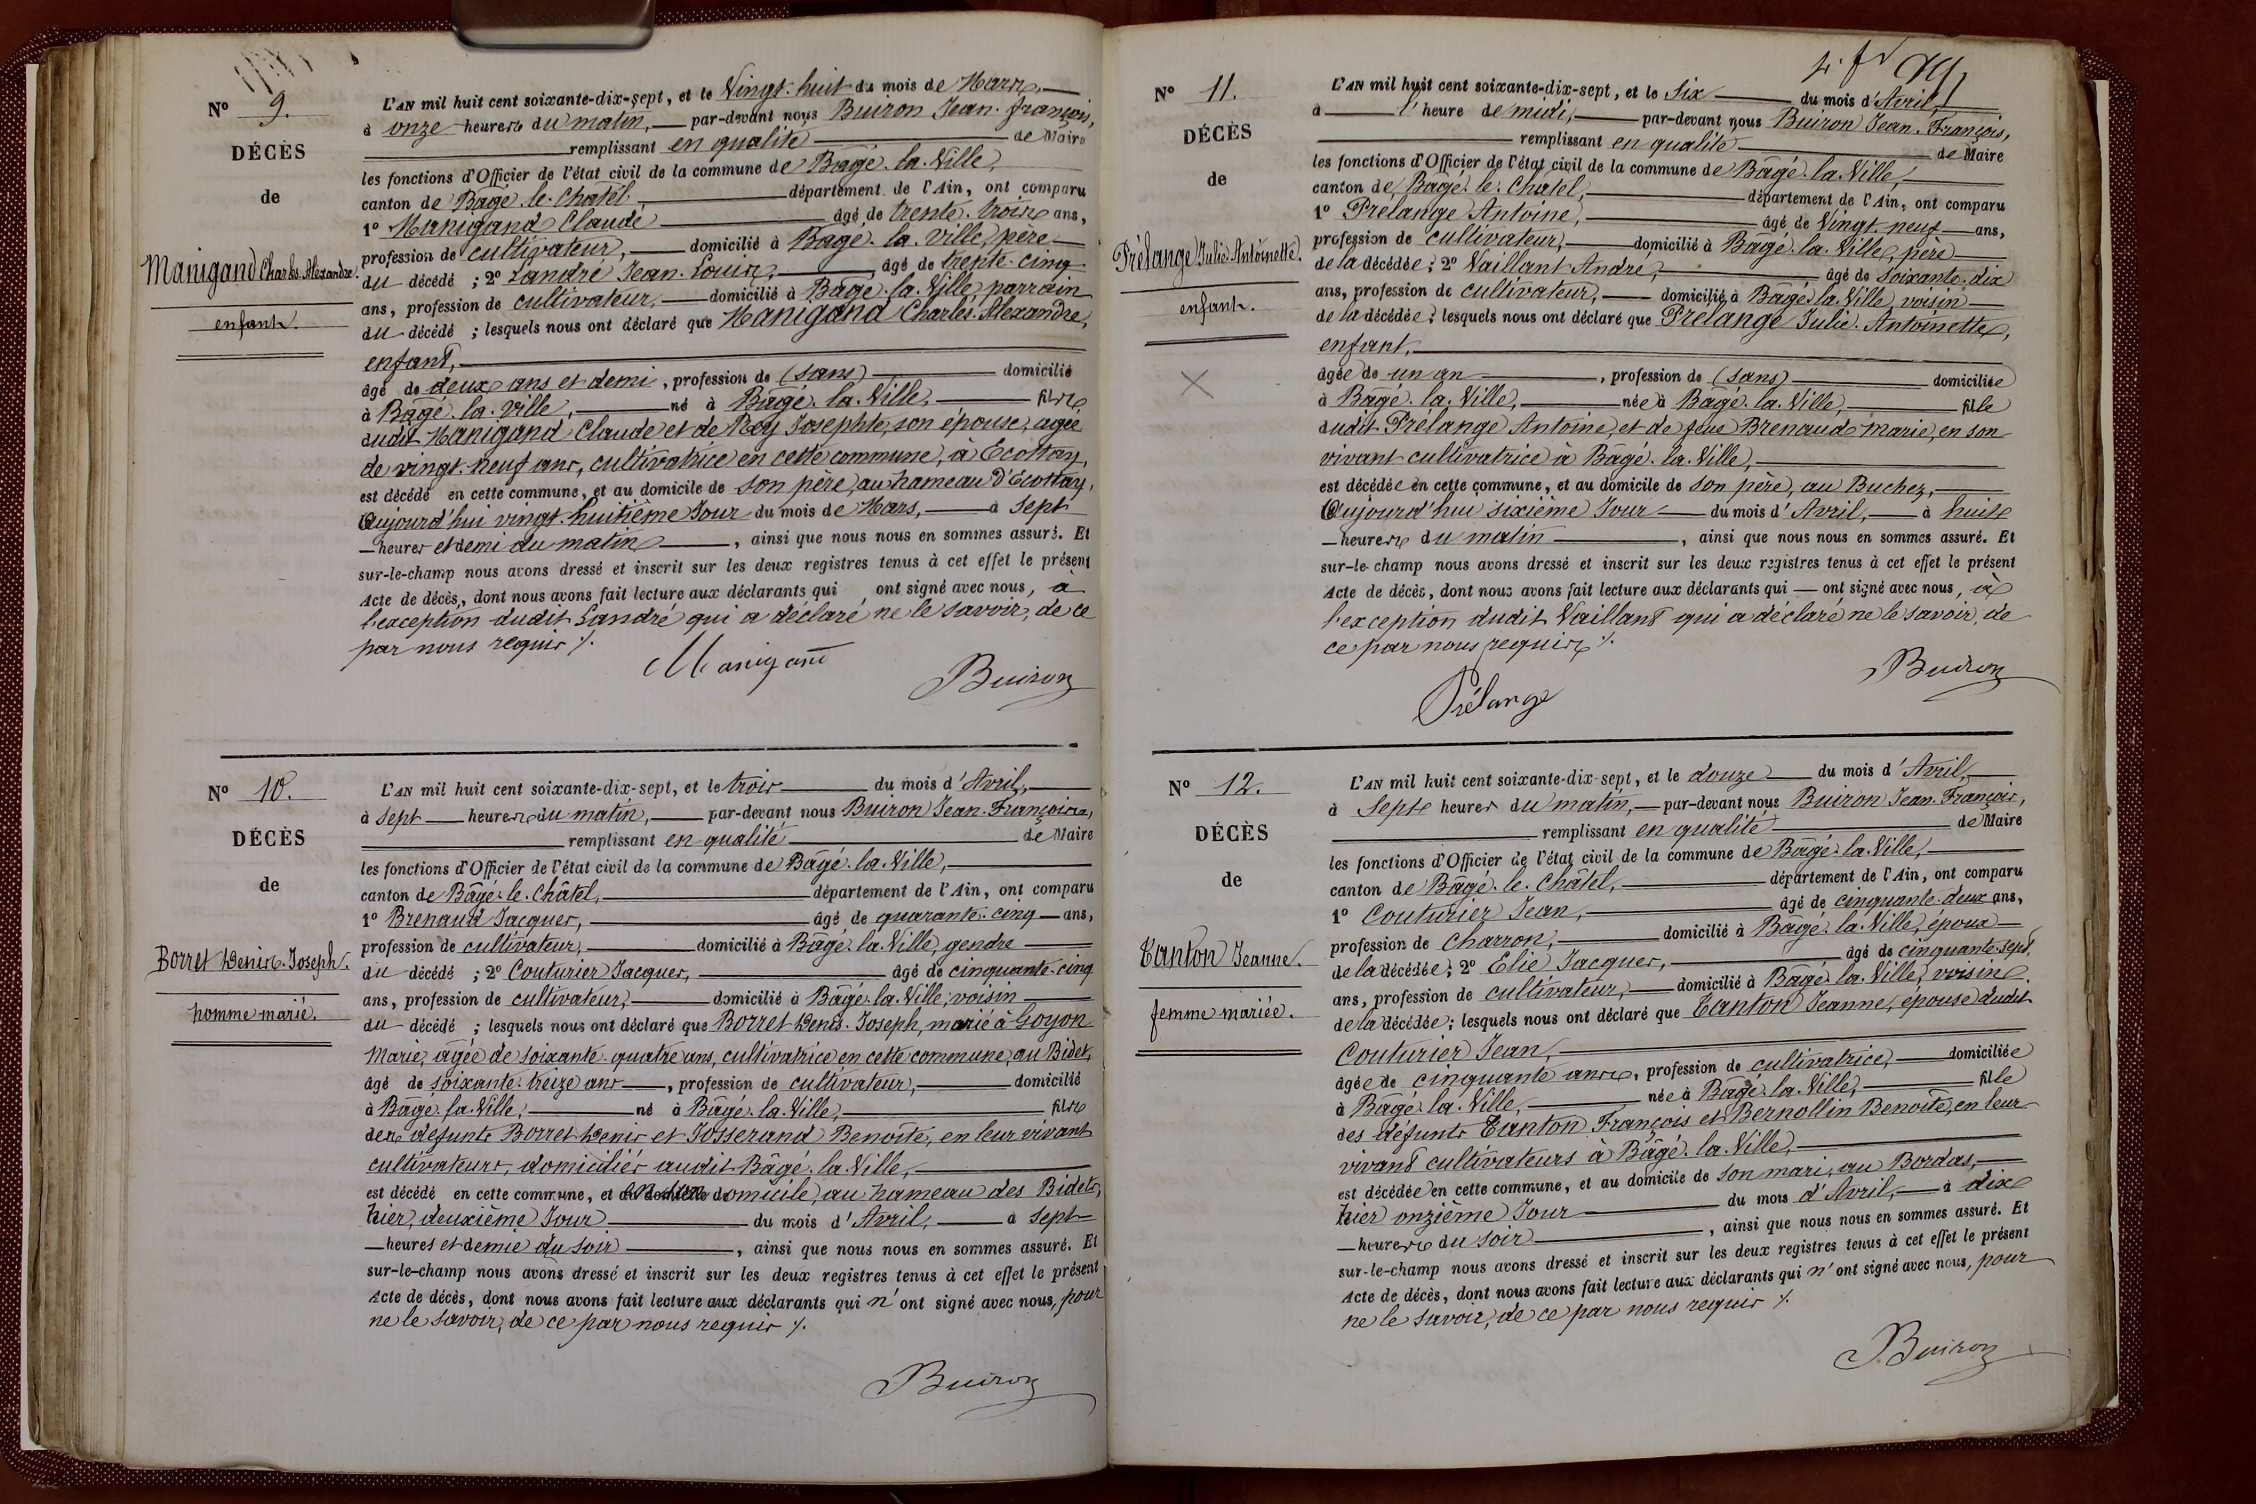 N° 9.
DÉCÈS
de
Manigand Charles Alexandre.
enfant.
L'AN mil huit cent soixante-dix-sept, et le Vingt-huit du mois de Mars,
à onze heures du matin, par-devant nous Buiron Jean-François,
remplissant en qualité de Maire
les fonctions d'Officier de l'état civil de la commune de Bâgé-la-Ville,
canton de Bâgé-le-Châtel, département de l'Ain, ont comparu
1° Manigand Claude âgé de trente-trois ans,
profession de cultivateur, domicilié à Bâgé-la-ville, père
du décédé ; 2° Landré Jean-Louis, âgé de trente-cinq
ans, profession de cultivateur, domicilié à Bâgé-la-Ville, parrain
du décédé ; lesquels nous ont déclaré que Manigand Charles-Alexandre,
enfant,
âgé de deux ans et demi, profession de (sans) domicilié
à Bâgé-la-Ville, né à Bâgé-la-Ville, fils
dudit Manigand Claude et de Rey Josephte, son épouse, agée
de vingt-neuf ans, cultivatrice en cette commune, à Ecottay,
est décédé en cette commune, et au domicile de son père, au hameau d'Ecottay,
Aujourd'hui vingt-huitième Jour du mois de Mars, à Sept
heures et demi du matin, ainsi que nous nous en sommes assuré. Et
sur-le-champ nous avons dressé et inscrit sur les deux registres tenus à cet effet le présent
Acte de décès, dont nous avons fait lecture aux déclarants qui ont signé avec nous, à
l'exception dudit Landré qui a déclaré ne le savoir, de ce
par nous requis /.
Manigand
Buiron
N° 10.
DÉCÈS
de
Borret Denis-Joseph.
homme marié.
L'AN mil huit cent soixante-dix-sept, et le trois du mois d'Avril,
à sept heures du matin, par-devant nous Buiron Jean-François,
remplissant en qualité de Maire
les fonctions d'Officier de l'état civil de la commune de Bâgé-la-Ville,
canton de Bâgé-le-Châtel, département de l'Ain, ont comparu
1° Brenaud Jacques, âgé de quarante-cinq ans,
profession de cultivateur, domicilié à Bâgé-la-Ville, gendre
du décédé ; 2° Couturier Jacques, âgé de cinquante-cinq
ans, profession de cultivateur, domicilié à Bâgé-la-Ville, voisin
du décédé ; lesquels nous ont déclaré que Borret Denis-Joseph, marié à Goyon
Marie, âgée de soixante-quatre ans, cultivatrice en cette commune, au Bidet,
âgé de soixante-treize ans, profession de cultivateur, domicilié
à Bâgé-la-Ville, né à Bâgé-la-Ville, fils
des défunts Borret Denis et Josserand Benoîte, en leur vivant
cultivateurs, domiciliés audit Bâgé-la-Ville,
est décédé en cette commune, et en son domicile, au hameau des Bidets,
hier, deuxième Jour du mois d'Avril, à sept
heures et demie du soir, ainsi que nous nous en sommes assuré. Et
sur-le-champ nous avons dressé et inscrit sur les deux registres tenus à cet effet le présent
Acte de décès, dont nous avons fait lecture aux déclarants qui n'ont signé avec nous, pour
ne le savoir, de ce par nous requis /.
Buiron
N° 11.
DÉCÈS
de
Prélange Julie Antoinette.
enfant.
L'AN mil huit cent soixante-dix-sept, et le Six du mois d'Avril,
à l'heure de midi, par-devant nous Buiron Jean-François,
remplissant en qualité de Maire
les fonctions d'Officier de l'état civil de la commune de Bâgé-la-Ville,
canton de Bâgé-le-Châtel, département de l'Ain, ont comparu
1° Prélange Antoine, âgé de Vingt-neuf ans,
profession de cultivateur, domicilié à Bâgé-la-Ville, père
de la décédée ; 2° Vaillant André, âgé de Soixante-dix
ans, profession de cultivateur, domicilié à Bâgé-la-Ville, voisin
de la décédée ; lesquels nous ont déclaré que Prélange Julie-Antoinette,
enfant,
âgée de un an, profession de (sans) domiciliée
à Bâgé-la-Ville, née à Bâgé-la-Ville, fille
dudit Prélange Antoine, et de feue Brenaud Marie, en son
vivant cultivatrice à Bâgé-la-Ville,
est décédée en cette commune, et au domicile de son père, au Buchez,
Aujourd'hui sixième Jour du mois d'Avril, à huit
heures du matin, ainsi que nous nous en sommes assuré. Et
sur-le-champ nous avons dressé et inscrit sur les deux registres tenus à cet effet le présent
Acte de décès, dont nous avons fait lecture aux déclarants qui ont signé avec nous, à
l'exception dudit Vaillant qui a déclaré ne le savoir, de
ce par nous requis /.
Prélange
Buiron
N° 12.
DÉCÈS
de
Tanton Jeanne.
femme mariée.
L'AN mil huit cent soixante-dix-sept, et le douze du mois d'Avril,
à Sept heures du matin, par-devant nous Buiron Jean-François,
remplissant en qualité de Maire
les fonctions d'Officier de l'état civil de la commune de Bâgé-la-Ville,
canton de Bâgé-le-Châtel, département de l'Ain, ont comparu
1° Couturier Jean, âgé de cinquante-deux ans,
profession de charron, domicilié à Bâgé-la-Ville, époux
de la décédée ; 2° Elie Jacques, âgé de cinquante-sept
ans, profession de cultivateur, domicilié à Bâgé-la-Ville, voisin
de la décédée ; lesquels nous ont déclaré que Tanton Jeanne, épouse dudit
Couturier Jean,
âgée de cinquante ans, profession de cultivatrice, domiciliée
à Bâgé-la-Ville, née à Bâgé-la-Ville, fille
des défunts Tanton François et Bernollin Benoîte, en leur
vivant cultivateurs à Bâgé-la-Ville,
est décédée en cette commune, et au domicile de son mari, au Bordas,
hier onzième Jour du mois d'Avril, à dix
heures du soir, ainsi que nous nous en sommes assuré. Et
sur-le-champ nous avons dressé et inscrit sur les deux registres tenus à cet effet le présent
Acte de décès, dont nous avons fait lecture aux déclarants qui n'ont signé avec nous, pour
ne le savoir, de ce par nous requis /.
Buiron